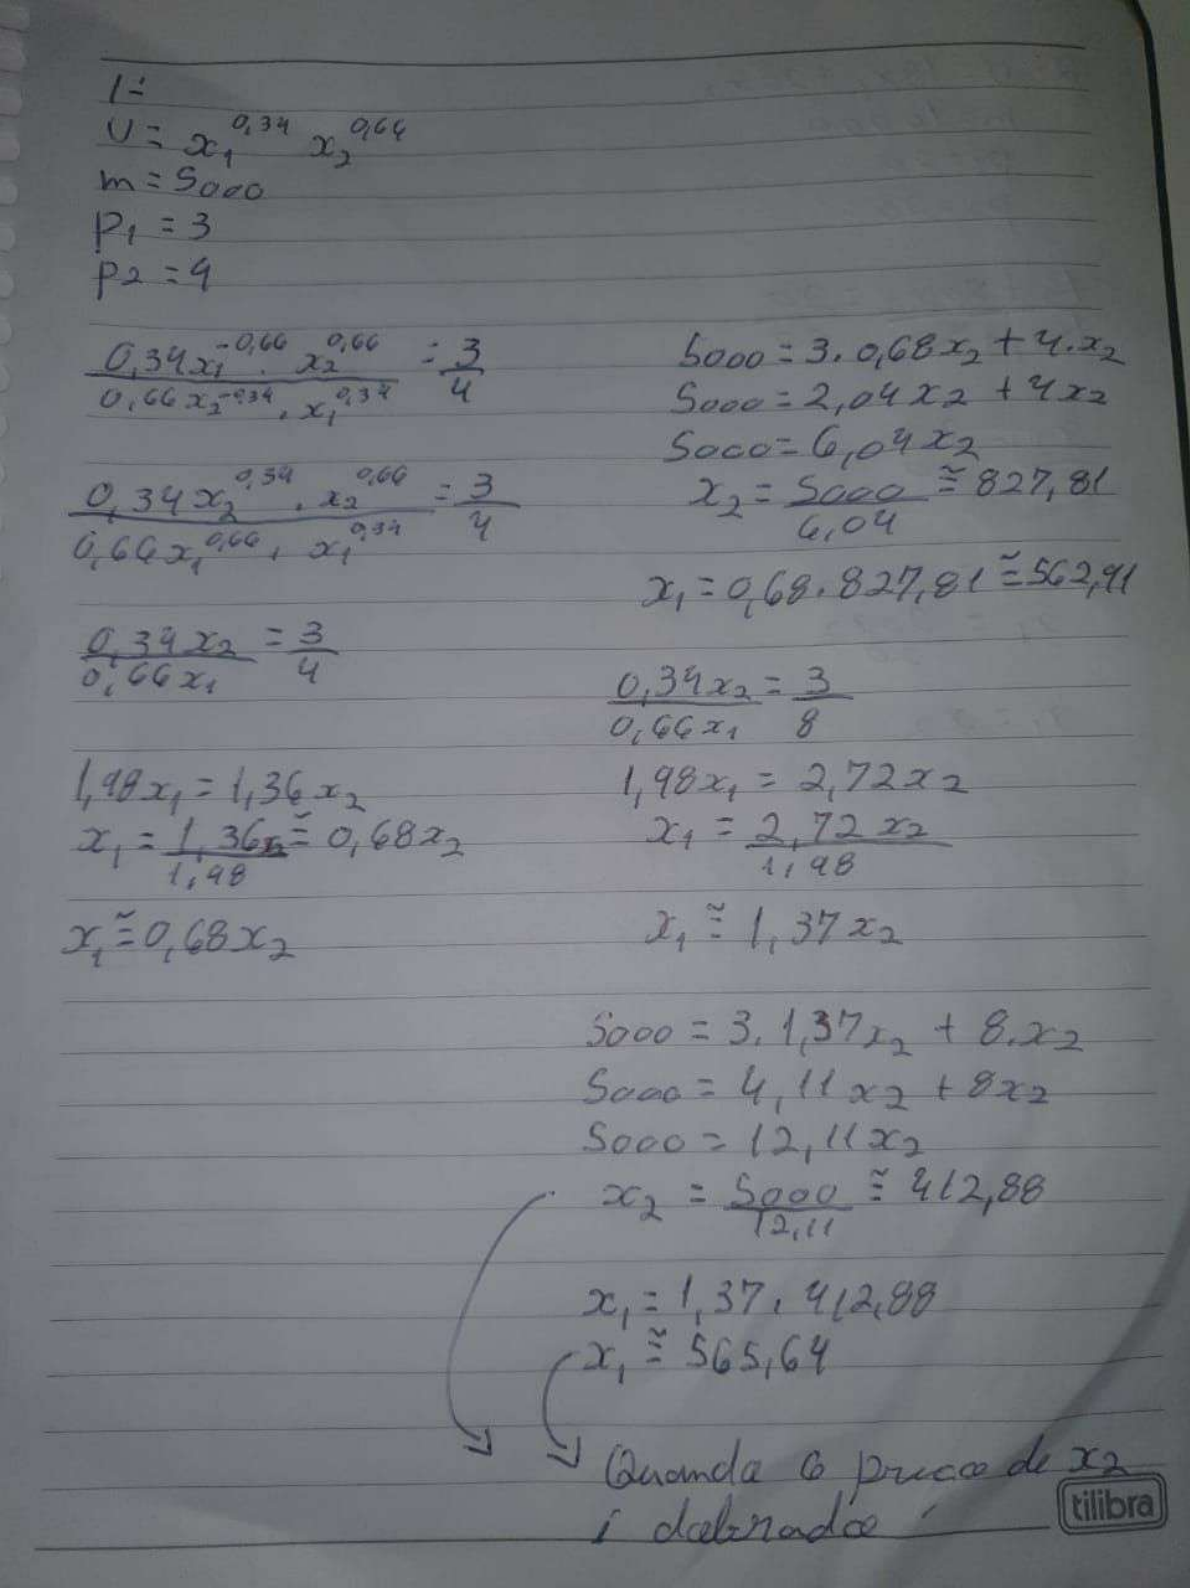 1-
U = x₁^0,34 x₂^0,64
m = 5000
p₁ = 3
p₂ = 4
0,34x₁^-0,66 . x₂^0,66 / 0,66x₂^-0,34 . x₁^0,34 = 3/4
0,34x₂^0,34 . x₂^0,66 / 0,66x₁^0,66 . x₁^0,34 = 3/4
0,34x₂ / 0,66x₁ = 3/4
1,98x₁ = 1,36x₂
x₁ = 1,36x₂ / 1,98 ≅ 0,68x₂
x₁ ≅ 0,68x₂
5000 = 3.0,68x₂ + 4.x₂
5000 = 2,04x₂ + 4x₂
5000 = 6,04x₂
x₂ = 5000 / 6,04 ≅ 827,81
x₁ = 0,68.827,81 ≅ 562,91
0,34x₂ / 0,66x₁ = 3/8
1,98x₁ = 2,72x₂
x₁ = 2,72x₂ / 1,98
x₁ ≅ 1,37x₂
5000 = 3.1,37x₂ + 8.x₂
5000 = 4,11x₂ + 8x₂
5000 = 12,11x₂
x₂ = 5000 / 12,11 ≅ 412,88
x₁ = 1,37.412,88
x₁ ≅ 565,64
Quando o preco de x₂
é dobrado
tilibra